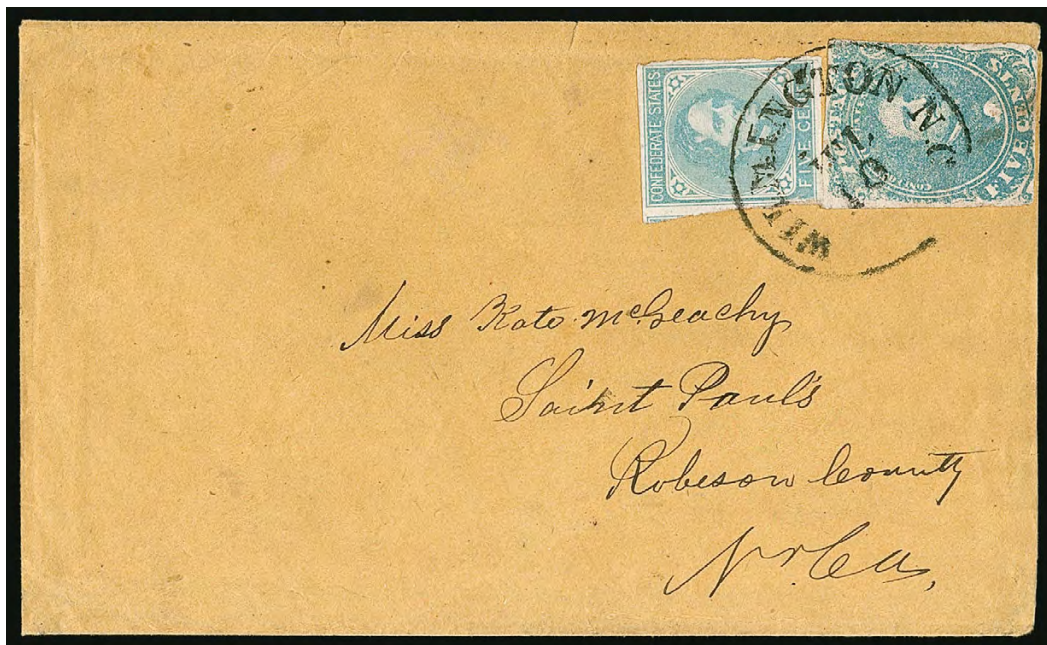 CONFEDERATE STATES
FIVE CE
STA
FIVE
WILMINGTON N.C.
JUL
10
Miss Kate McGeachy
Saint Paul's
Robeson County
N. Ca,